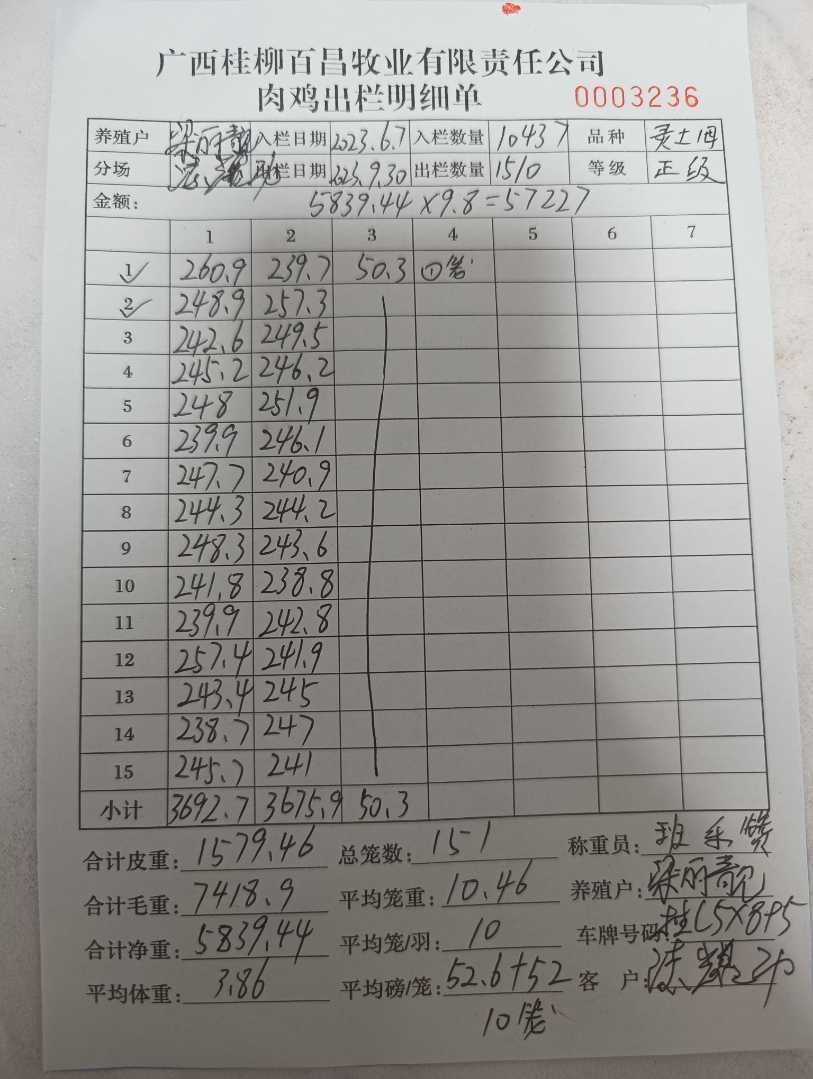 广西桂柳百昌牧业有限责任公司
肉鸡出栏明细单 0003236
养殖户 梁丽靓 入栏日期 2023.6.7 入栏数量 10437 品种 麦土
分场 栏日期 2023.9.30 出栏数量 1510 等级 正级
金额: 5839.44×9.8=57227
1 2 3 4 5 6 7
1 260.9 239.7 50.3 ①笼
2 248.9 257.3
3 242.6 249.5
4 245.2 246.2
5 248 251.9
6 239.9 246.1
7 247.7 240.9
8 244.3 244.2
9 248.3 243.6
10 241.8 238.8
11 239.9 242.8
12 257.4 241.9
13 243.4 245
14 238.7 247
15 245.7 241
小计 3692.7 3675.9 50.3
合计皮重: 1579.46 总笼数: 151 称重员: 班
合计毛重: 7418.9 平均笼重: 10.46 养殖户: 梁丽靓
合计净重: 5839.44 平均笼/羽: 10 车牌号码: 桂L5X8P5
平均体重: 3.86 平均磅/笼: 52.6+52 客户:
10笼